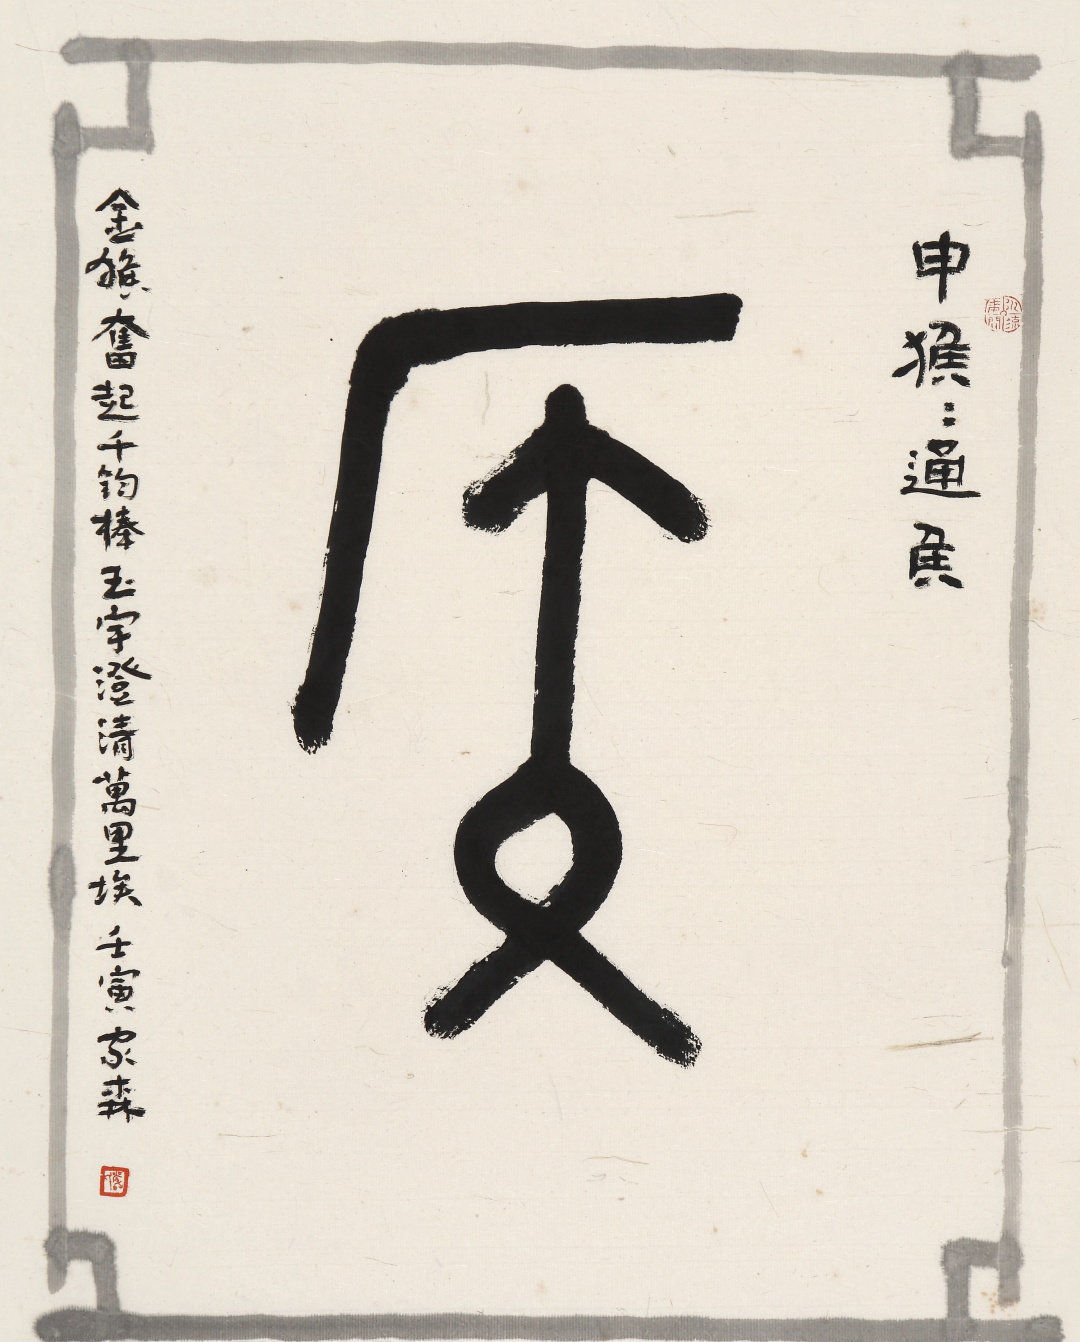 申猴：通侯
侯
金猴奮起千鈞棒玉宇澄清萬里埃 壬寅 家森